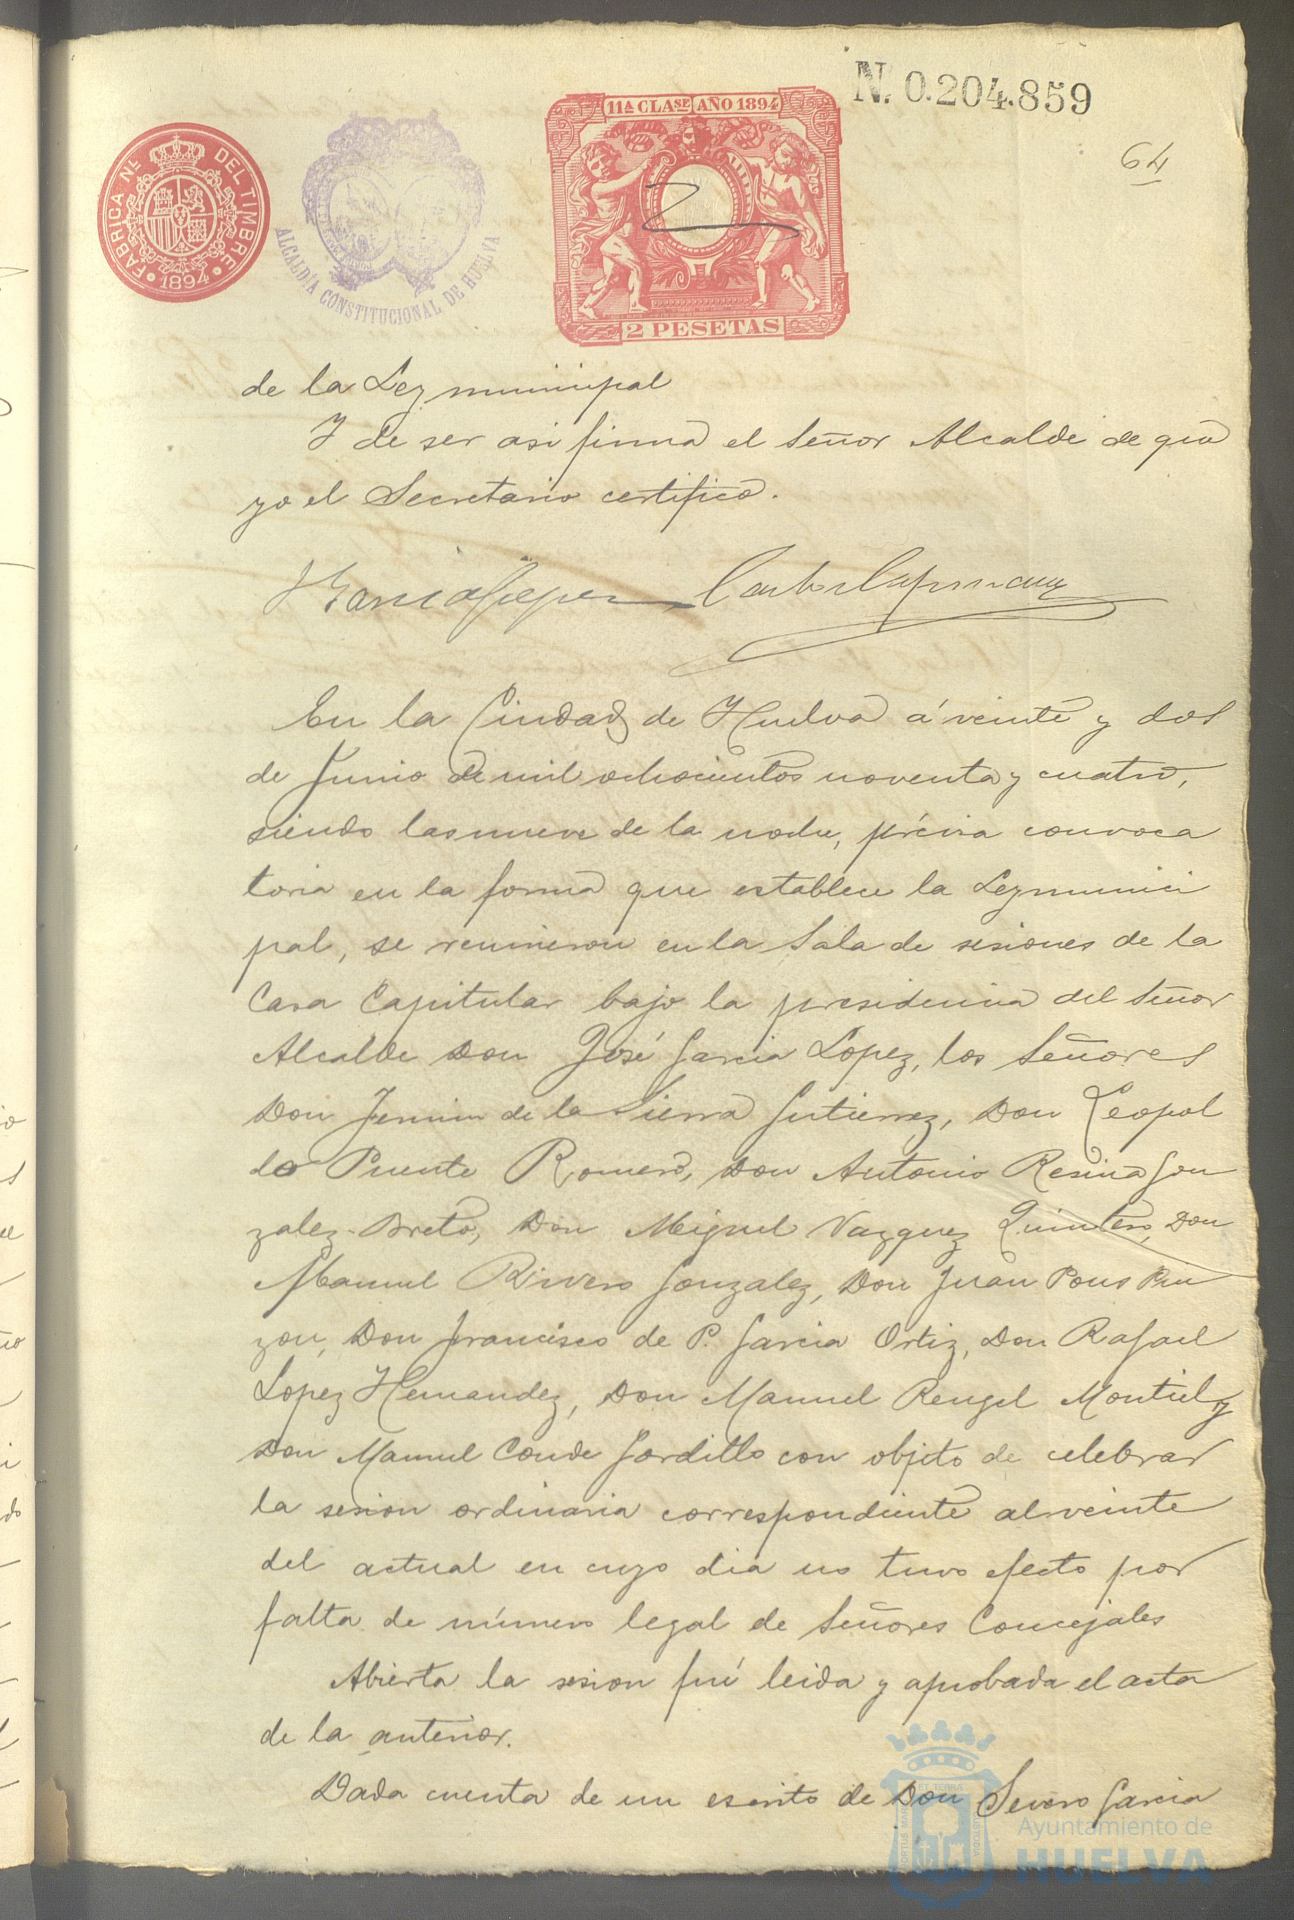 N. 0.204.859
64
11ª CLASE AÑO 1894
FABRICA NL DEL TIMBRE
1894
ALCALDÍA CONSTITUCIONAL DE HUELVA
2 PESETAS
de la Ley municipal
Y de ser asi firma el Señor Alcalde de que
yo el Secretario certifico.
J Garcia Lopez
En la Ciudad de Huelva á veinte y dos
de Junio de mil ochocientos noventa y cuatro,
siendo las nueve de la noche, prévia convoca
toria en la forma que establece la Ley munici
pal, se reunieron en la Sala de sesiones de la
Casa Capitular bajo la presidencia del Señor
Alcalde Don José Garcia Lopez, los Señores
Don Fermin de la Sierra Gutierrez, Don Leopol
do Puente Romero, Don Antonio Resina Gon
zalez Breto, Don Miguel Vazquez Quintero, Don
Manuel Rivero Gonzalez, Don Juan Pons Pin
zon, Don Francisco de P. Garcia Ortiz, Don Rafael
Lopez Hernandez, Don Manuel Rengel Montiel y
Don Manuel Conde Gordillo con objeto de celebrar
la sesion ordinaria correspondiente al veinte
del actual en cuyo dia no tuvo efecto por
falta de número legal de Señores Concejales
Abierta la sesion fué leida y aprobada el acta
de la anterior.
Dada cuenta de un escrito de Don Severo Garcia
Ayuntamiento de
HUELVA